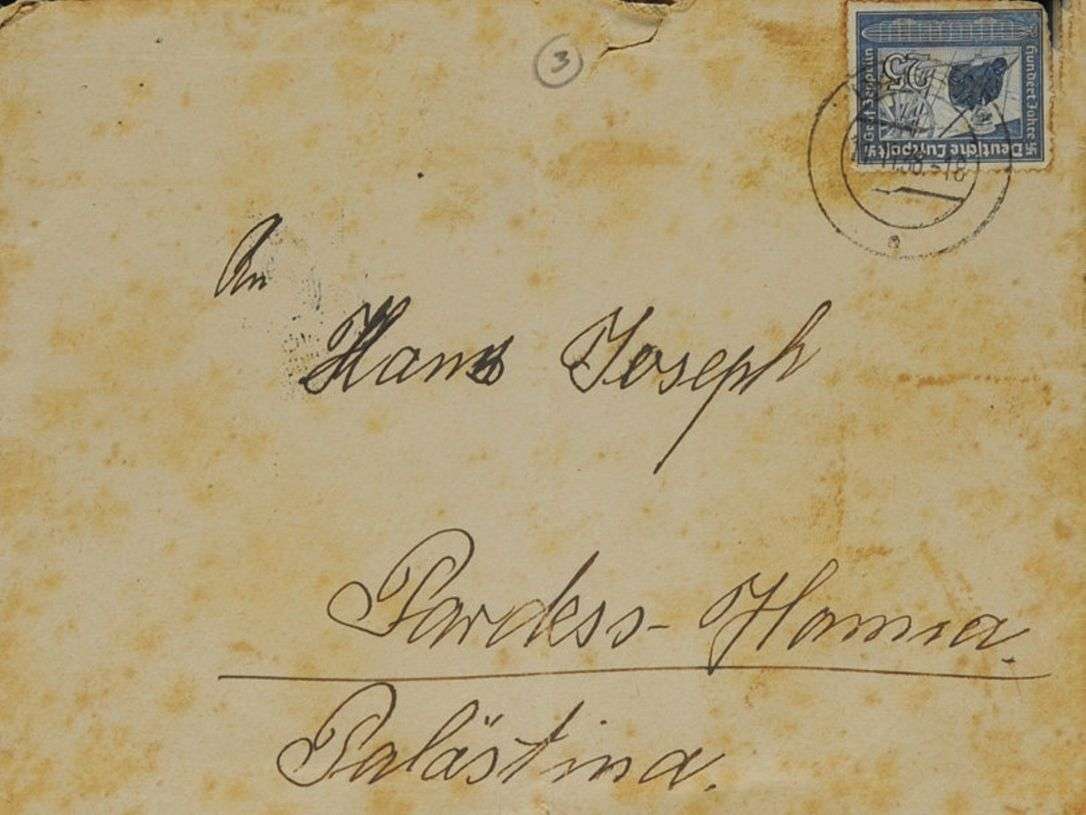 3
Hundert Jahre
25
Graf Zeppelin
Deutsche Luftpost
38.-18
a
An
Hans Joseph
Pardess-Hanna.
Palästina.